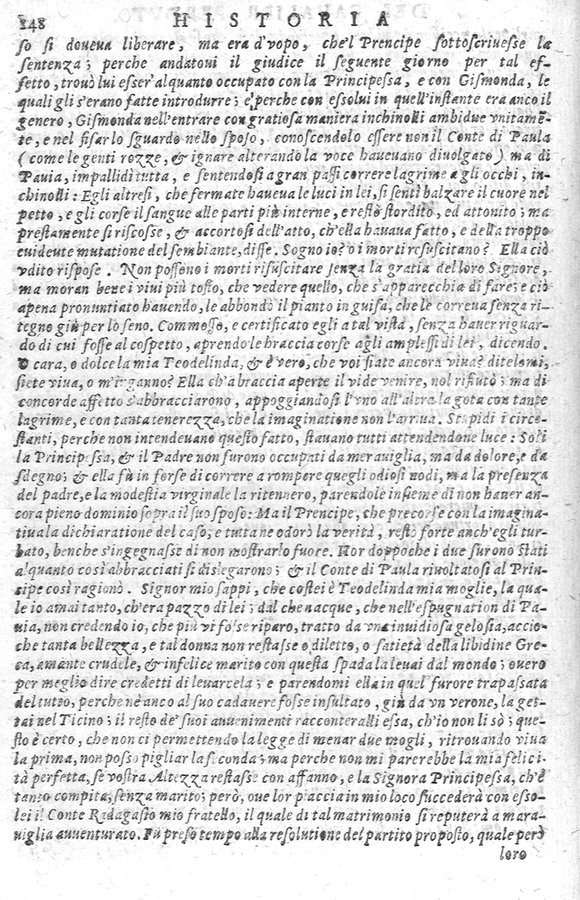 248 HISTORIA
so si doveua liberare, ma era d'vopo, che'l Prencipe sottoscriuesse la
sentenza; perche andatoui il giudice il seguente giorno per tal ef-
fetto, trouò lui esser alquanto occupato con la Principessa, e con Gismonda, le
quali gli s'erano fatte introdurre; e perche con essolui in quell'instante era anco il
genero, Gismonda nell'entrare con gratiosa maniera inchinolli ambidue vnitamẽ-
te, e nel fisar lo sguardo nello sposo, conoscendolo essere non il Conte di Paula
(come le genti rozze, & ignare alterando la voce haueuano diuolgato) ma di
Pauia, impallidì tutta, e sentendosi a gran passi correre lagrime a gli occhi, in-
chinolli: Egli altresì, che fermate haueua le luci in lei, si sentì balzare il cuore nel
petto; e gli corse il sangue alle parti più interne, e restò stordito, ed attonito; ma
prestamente si riscosse, & accortosi dell'atto, ch'ella hauaua fatto, e della troppo
euideute mutatione del sembiante, disse. Sogno io? o i morti resuscitano? Ella ciò
vdito rispose. Non possono i morti risuscitare senza la gratia del loro Signore,
ma moran bene i viui più tosto, che vedere quello, che s'apparecchia di fare; e ciò
apena pronuntiato hauendo, le abbondò il pianto in guisa, che le correua senza ri-
tegno giù per lo seno. Commosso, e certificato egli a tal vista, senza hauer riguar-
do di cui fosse al cospetto, aprendo le braccia corse agli amplessi di lei, dicendo.
O cara, o dolce la mia Teodelinda, & è vero, che voi siate ancora viua? ditelomi,
siete viua, o m'inganno? Ella ch'a braccia aperte il vide venire, nol rifiutò; ma di
concorde affetto s'abbracciarono, appoggiandosi l'vno all'altra la gota con tante
lagrime, e con tanta tenerezza, che la imaginatione non l'arriua. Stupidi i circo-
stanti, perche non intendeuano questo fatto, stauano tutti attendendone luce: Soli
la Principessa, & il Padre non furono occupati da merauiglia, ma da dolore, e da
sdegno; & ella fù in forse di correre a rompere quegli odiosi nodi, ma la presenza
del padre, e la modestia virginale la ritennero, parendole insieme di non hauer an-
cora pieno dominio sopra il suo sposo: Ma il Prencipe, che precorse con la imagina-
tiua la dichiaratione del caso, e tutta ne odorò la verità, restò forte anch'egli tur-
bato, benche s'ingegnasse di non mostrarlo fuore. Hor doppoche i due furono stati
alquanto così abbracciati si dislegarono; & il Conte di Paula riuoltatosi al Prin-
cipe così ragionò. Signor mio sappi, che costei è Teodelinda mia moglie, la qua-
le io amai tanto, ch'era pazzo di lei; dal che nacque, che nell'espugnation di Pa-
uia, non credendo io, che più vi fosse riparo, tratto da vna inuidiosa gelosia, accio-
che tanta bellezza, e tal donna non restasse o diletto, o satietà della libidine Gre-
ca, amante crudele, & infelice marito con questa spada la leuai dal mondo; ouero
per meglio dire credetti di leuarcela; e parendomi ella in quel furore trapassata
del tutto, perche nè anco al suo cadauere fosse insultato, giù da vn verone, la get-
tai nel Ticino; il resto de' suoi auuenimenti racconteralli essa, ch'io non li sò; que-
sto è certo, che non ci permettendo la legge di menar due mogli, ritrouando viua
la prima, non posso pigliar la seconda; ma perche non mi parerebbe la mia felici-
tà perfetta, se vostra Altezza restasse con affanno, e la Signora Principessa, ch'è
tanto compita, senza marito; però, oue lor piaccia in mio loco succederà con esso-
lei il Conte Radagasio mio fratello, il quale di tal matrimonio si reputerà a mara-
viglia auuenturato. Fù preso tempo alla resolutione del partito proposto, quale però
loro